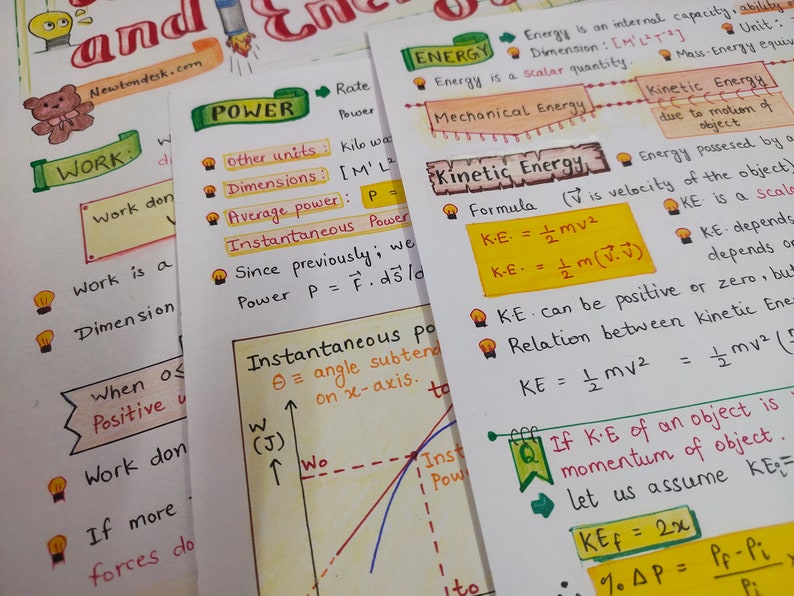 and Energy
Newtondesk.com
WORK:
Work don
Work is a
Dimension
When 0≤
Positive
Work don
If more
forces do
POWER
Rate
Power
Other units: Kilo wa
Dimensions: [M¹L²
Average power: P =
Instantaneous Power
Since previously; we
Power P = F⃗. ds⃗/d
Instantaneous po
θ ≡ angle subtend
on x-axis.
W
(J)
Wo
Inst
Pow
to
ENERGY
Energy is an internal capacity, ability
Dimension: [M¹L²T⁻²]
Unit:
Energy is a scalar quantity.
Mass-Energy equiv
Mechanical Energy
Kinetic Energy
due to motion of
object
Kinetic Energy
Energy possesed by a
Formula (V⃗ is velocity of the object)
K.E. = 1/2 mv²
K.E. = 1/2 m(v⃗.v⃗)
KE is a scala
KE. depends
depends on
K.E. can be positive or zero, but
Relation between Kinetic Ene
KE = 1/2 mv² = 1/2 mv²
Q
If K.E of an object is
momentum of object.
let us assume KEi=
KEf = 2x
% ΔP = Pf-Pi/Pi x